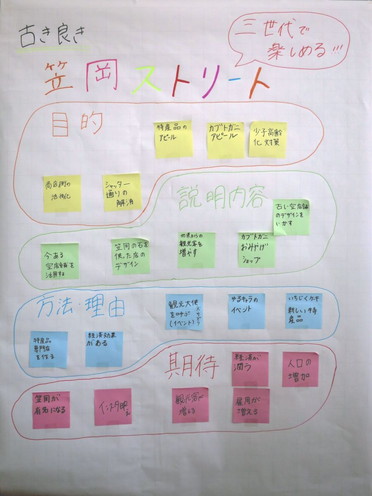 古き良き
三世代で
楽しめる!!!
笠岡ストリート
目的
特産品の
アピール
カブトガニ
アピール
少子高齢
化対策
商店街の
活性化
シャッター
通りの
解消
説明内容
古い空店舗
のデザインを
いかす
今ある
空店舗を
活用する
笠岡の石を
使た店の
デザイン
観光客を
増やす
カブトガニ
おみやげ
ショップ
方法・理由
観光大使
を呼ぶ
(イベント)
ゆるキャラの
イベント
新しい特
産品
特産品
専門店
を作る
経済効果
がある
期待
経済が
潤う
人口の
増加
笠岡が
有名になる
観光客が
増える
雇用が
増える